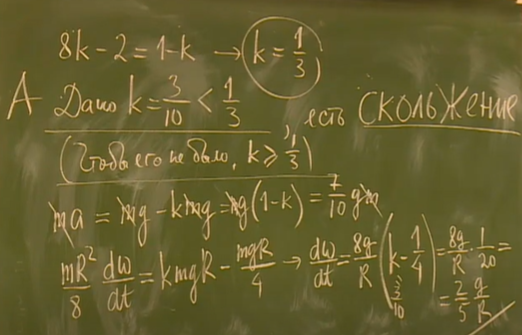 8k - 2 = 1 - k → k = 1/3,
А Дано k = 3/10 < 1/3, есть СКОЛЬЖение
(Чтобы его не было, k ⩾ 1/3)
ma = mg - kmg = mg(1-k) = 7/10 gm
mR²/8 dω/dt = kmgR - mgR/4 → dω/dt = 8g/R (k - 1/4) = 8g/R · 1/20 =
3/10 = 2/5 g/R